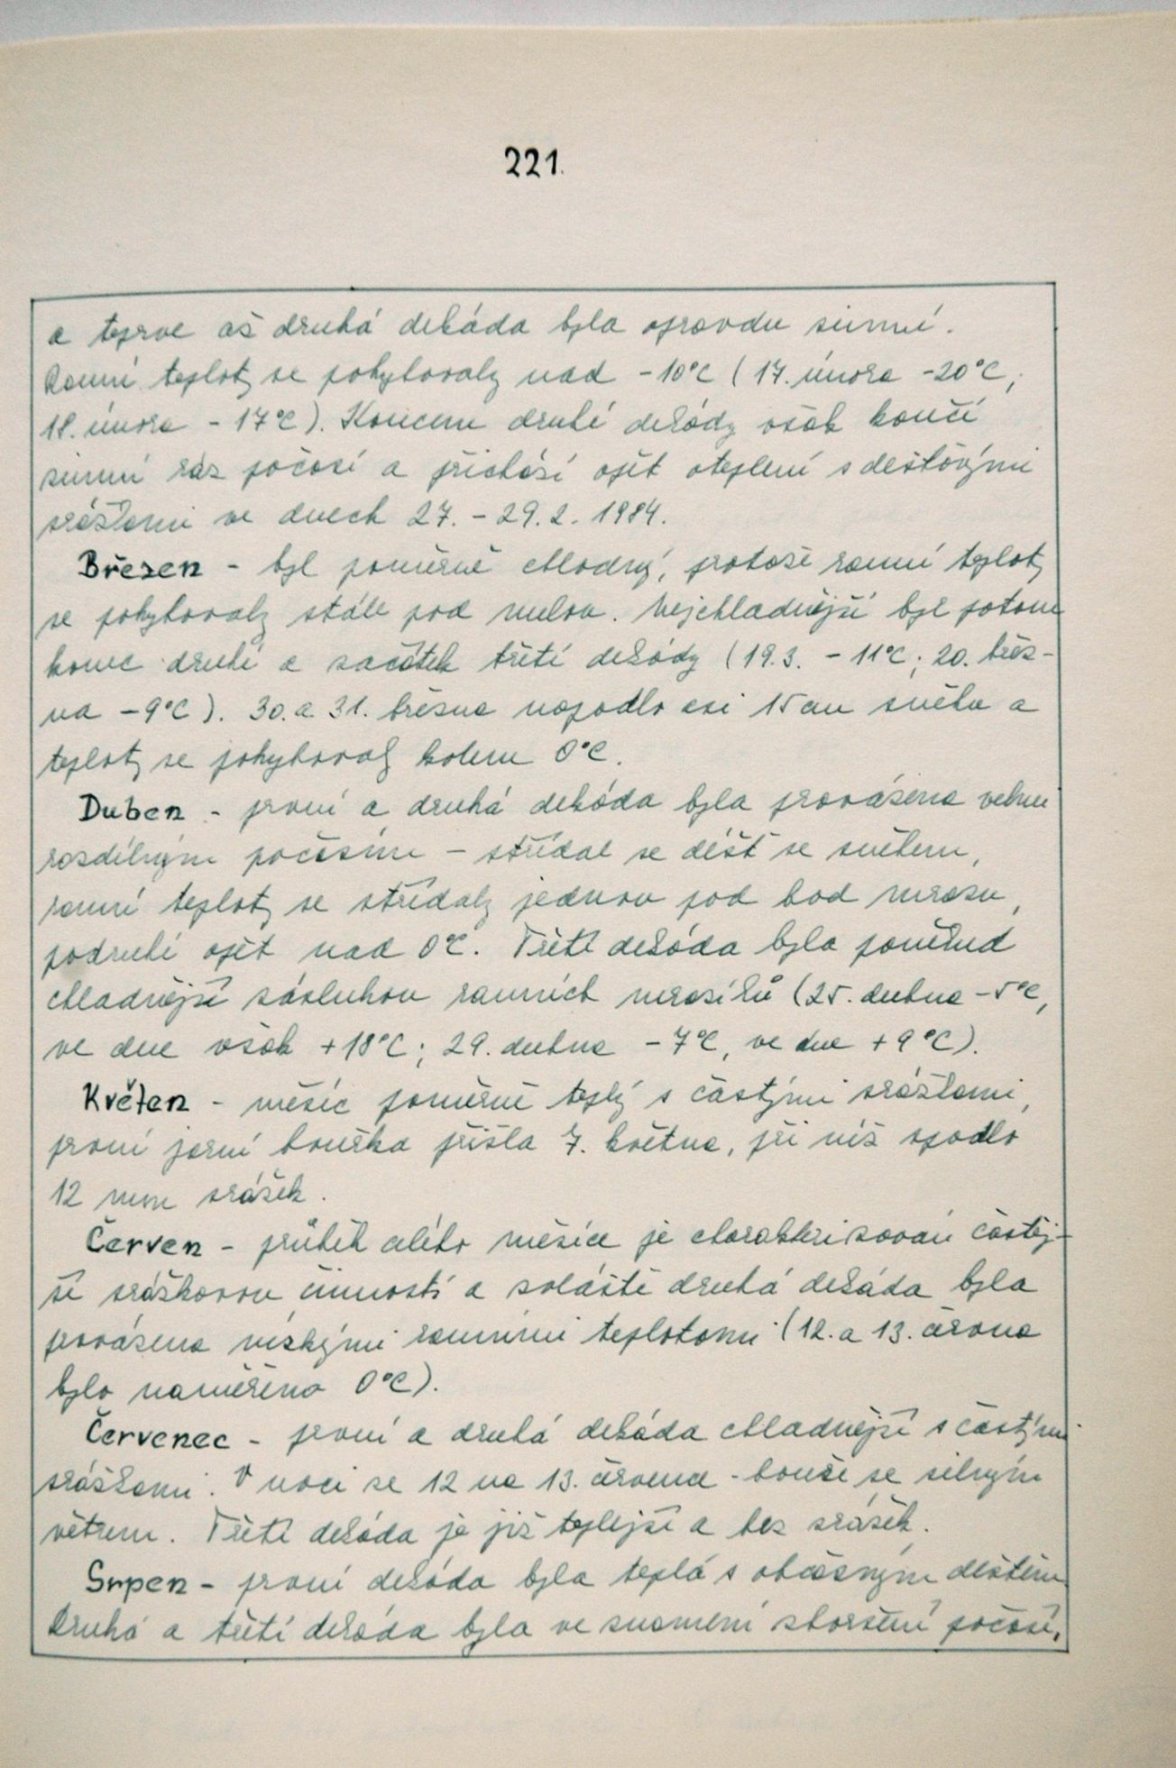 221.
a teprve až druhá dekáda byla opravdu zimní.
Ranní teploty se pohybovaly nad -10°C (17. února -20°C,
18. února - 17°C). Koncem druhé dekády však končí
zimní ráz počasí a přichází opět oteplení s dešťovými
srážkami ve dnech 27. - 29.2. 1984.
Březen - byl poměrně chladný, protože ranní teploty
se pohybovaly stále pod nulou. Nejchladnější byl potom
konec druhé a začátek třetí dekády (19.3. - 11°C; 20. břez-
na - 9°C). 30. a 31. března napadlo asi 15 cm sněhu a
teploty se pohybovaly kolem 0°C.
Duben - první a druhá dekáda byla provázena velmi
rozdílným počasím - střídal se déšť se sněhem,
ranní teploty se střídaly jednou pod bod mrazu,
podruhé opět nad 0°C. Třetí dekáda byla poměrně
chladnější zásluhou ranních mrazíků (25. dubna -5°C,
ve dne však +18°C; 29. dubna - 7°C, ve dne + 9°C).
Květen - měsíc poměrně teplý s častými srážkami,
první jarní bouřka přišla 7. května, při níž spadlo
12 mm srážek.
Červen - průběh celého měsíce je charakterizován častěj-
ší srážkovou činností a zvláště druhá dekáda byla
provázena nízkými ranními teplotami (12. a 13. června
bylo naměřeno 0°C).
Červenec - první a druhá dekáda chladnější s častými
srážkami. V noci ze 12 na 13. července - bouře se silným
větrem. Třetí dekáda je již teplejší a bez srážek.
Srpen - první dekáda byla teplá s občasným deštěm.
Druhá a třetí dekáda byla ve znamení zhoršení počasí,